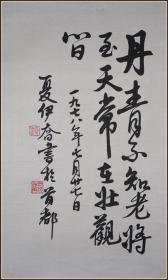 丹青不知老将
至天常在壮觀
間
一九七八年七月廿七日
夏伊喬書於首都